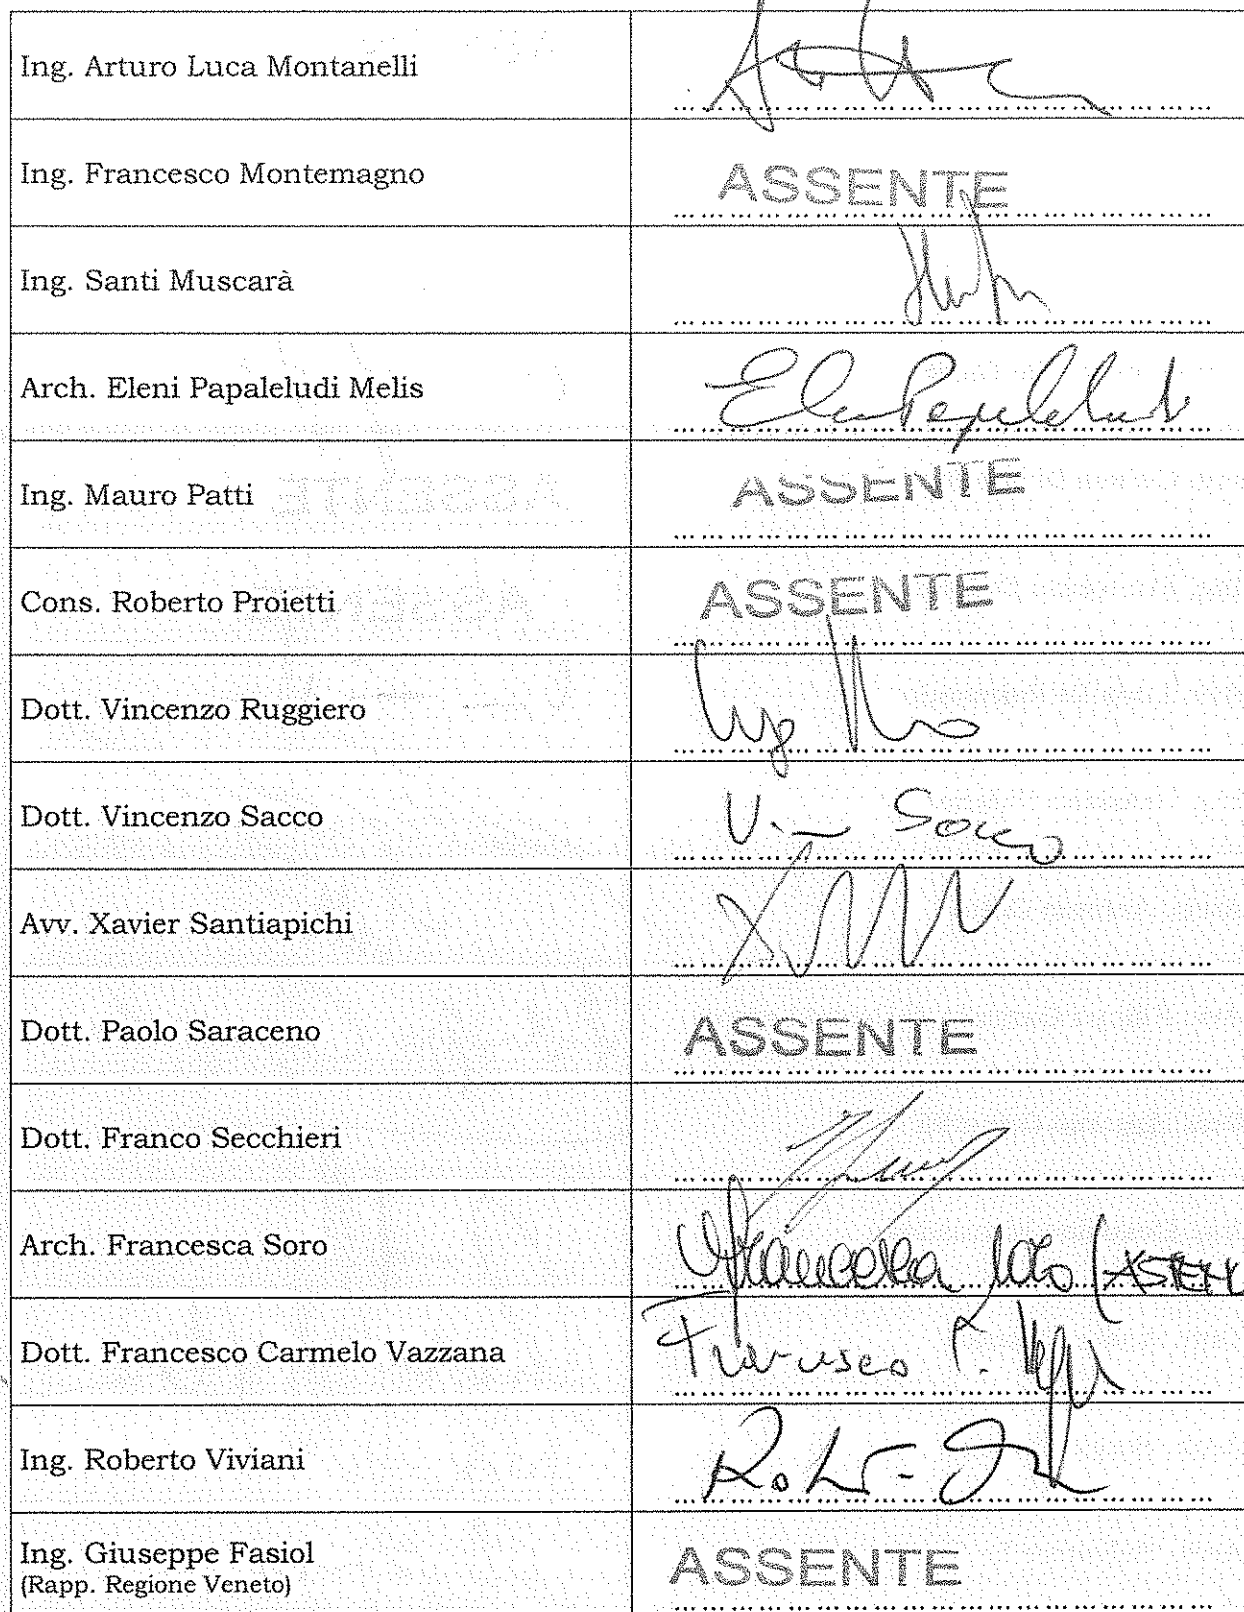 Ing. Arturo Luca Montanelli
Ing. Francesco Montemagno ASSENTE
Ing. Santi Muscarà
Arch. Eleni Papaleludi Melis
Ing. Mauro Patti ASSENTE
Cons. Roberto Proietti ASSENTE
Dott. Vincenzo Ruggiero
Dott. Vincenzo Sacco V. Sacco
Avv. Xavier Santiapichi
Dott. Paolo Saraceno ASSENTE
Dott. Franco Secchieri
Arch. Francesca Soro Francesca Soro
Dott. Francesco Carmelo Vazzana Francesco C.
Ing. Roberto Viviani
Ing. Giuseppe Fasiol ASSENTE
(Rapp. Regione Veneto)